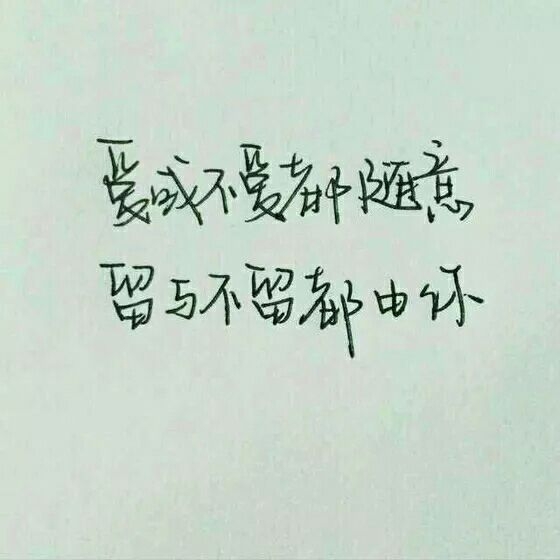 爱或不爱都随意
留与不留都由你